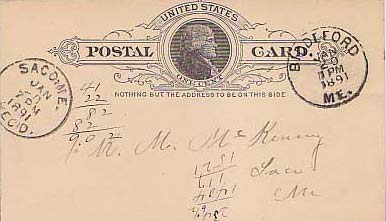 UNITED STATES
POSTAL CARD.
ONE CENT
NOTHING BUT THE ADDRESS TO BE ON THIS SIDE
BIDDEFORD
JAN
1 PM
1891
ME.
SACO, ME.
JAN
7 PM
1891
REC'D.
41
22
82
82
M. M. McKenny
Saco
Me